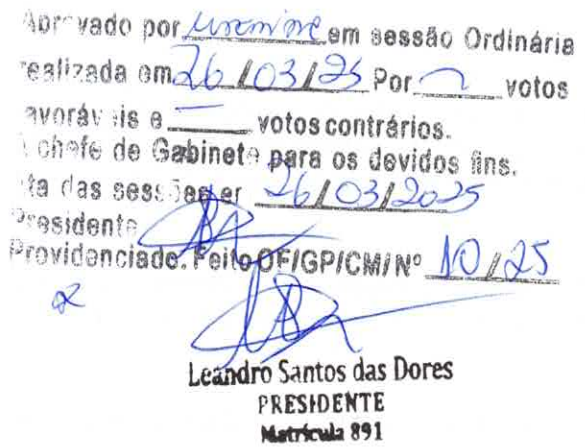 Aprovado por unânime em sessão Ordinária
realizada em 26/03/25 Por votos
favoráveis e votos contrários.
A chefe de Gabinete para os devidos fins.
ta das sessões em 26/03/2025
Presidente
Providenciado. Feito OF/GP/CM/Nº 10/25
Leandro Santos das Dores
PRESIDENTE
Matrícula 891